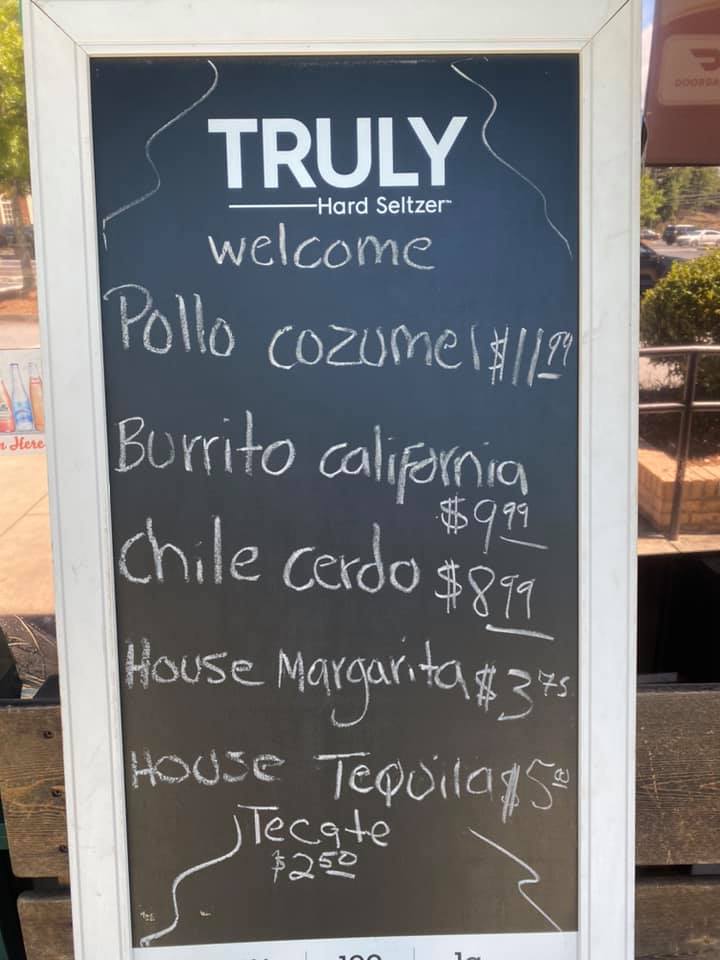 TRULY
Hard Seltzer
welcome
Pollo cozumel $11.99
Burrito california
$9.99
Chile cerdo $8.99
House Margarita $3.75
House Tequila $5
Tecate
$2.50
n Here
100
1g